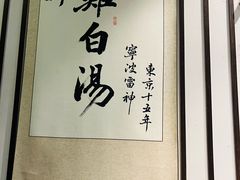 雞白湯
東京十五年
寧波雷神